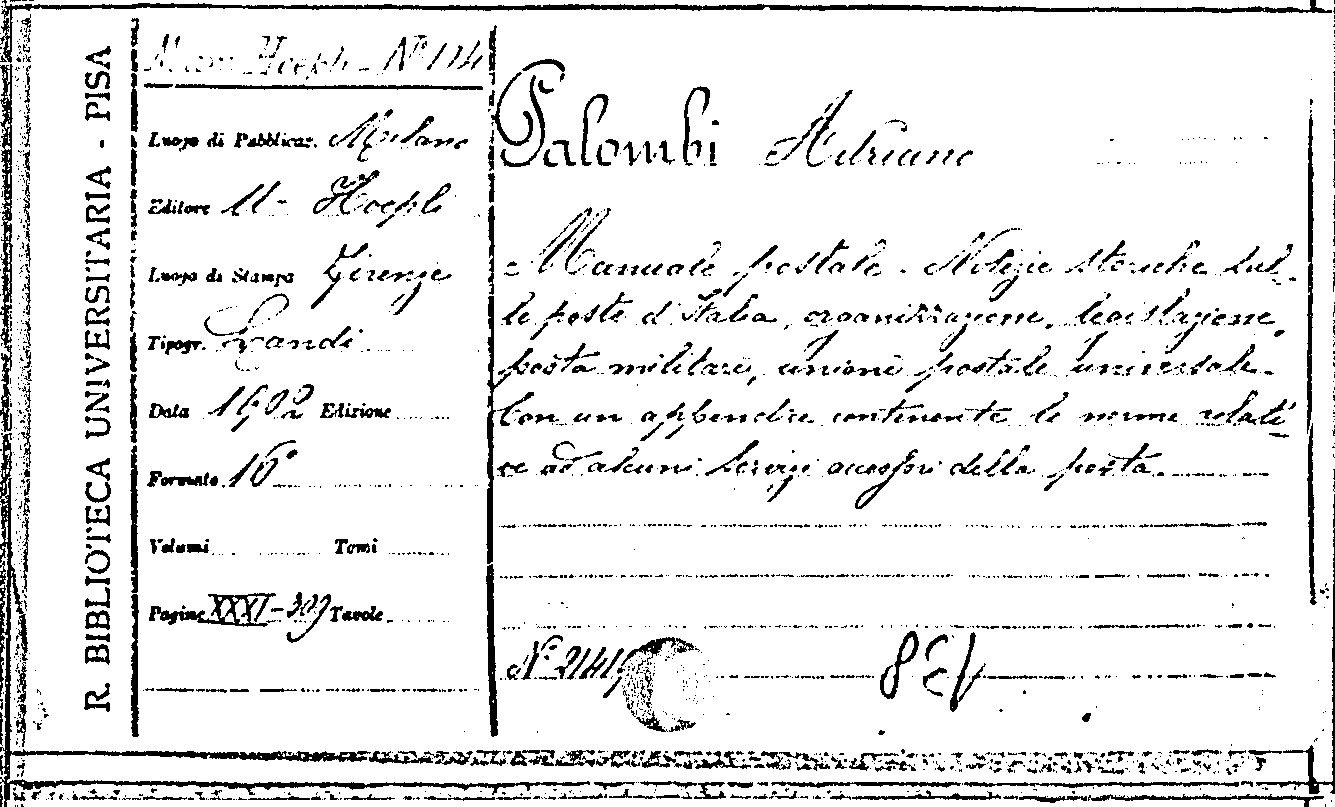 R. BIBLIOTECA UNIVERSITARIA - PISA
Hoepli - N°
Luogo di Pubblicaz. Milano
Editore U. Hoepli
Luogo di Stampa Firenze
Tipogr. Landi
Data 1902 Edizione
Formato 16°
Volumi Tomi
Pagine XXXI-309 Tavole
Palombi Adriano
Manuale postale. Notizie storiche sul-
le poste d'Italia, organizzazione, legislazione,
posta militare, unione postale universale.
Con un appendice contenente le norme relati-
ve ad alcuni servizi accessori della posta.
N° 2141